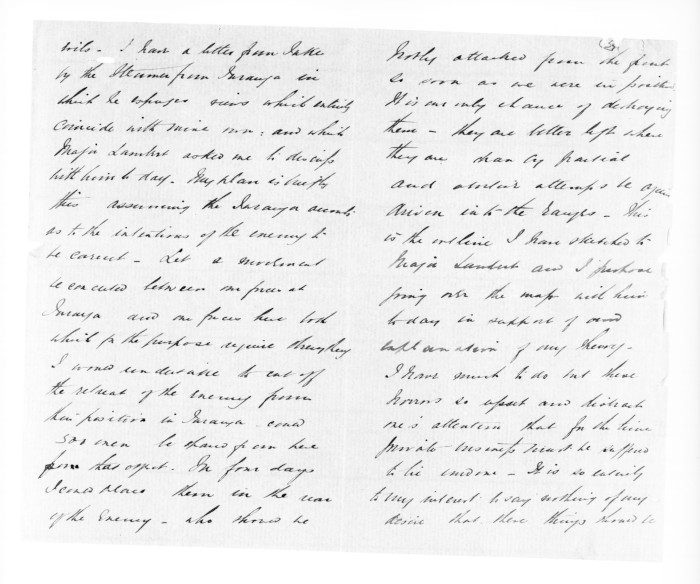 vils - I have a letter from Tuke
by the Steamer from Turanga in
which he expresses views which entirely
coincide with mine own, and which
Major Lambert asked me to discuss
with him to day. My plan is briefly
this assuming the Turanga accounts
as to the intentions of the enemy to
be correct - Let a movement
be executed between our forces at
Turanga and our forces here both
which for the purpose require strengthening
I would undertake to cut off
the retreat of the enemy from
their position in Turanga could
300 men be spared from here
from this spot. In four days
I could place them in the rear
of the Enemy - who should be
(3)
hotly attacked from the front
so soon as we were in position
It is our only chance of destroying
them - they are better left where
they are than by partial
and abortive attempts be again
driven into the Ranges - This
is the outline I have sketched to
Major Lambert and I purpose
going over the map with him
to day in support of
explanation of my theory -
I have much to do but these
horrors so upset and distract
one's attention that for the time
private business must be suffered
to lie undone - It is so entirely
to my interest to say nothing of my
desire that these things should be